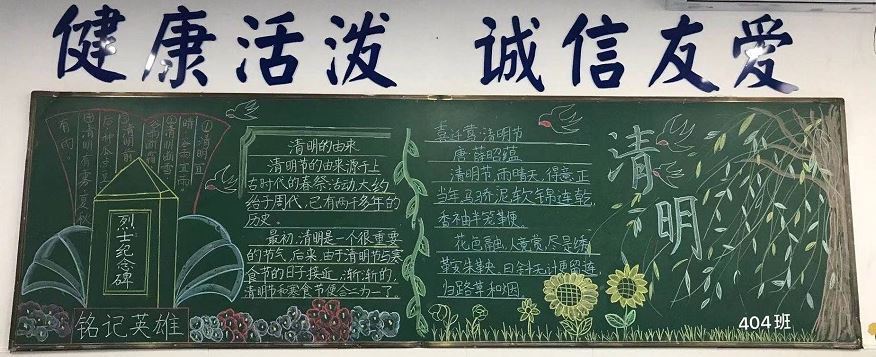 健康活泼 诚信友爱
清明的由来
清明节的由来源于上
古时代的春祭活动,大约
始于周代,已有两千多年的
历史。
最初,清明是一个很重要
的节气,后来,由于清明节与寒
食节的日子接近,渐渐的,
清明节和寒食节便合二为一了。
喜迁莺·清明节
唐·薛昭蕴
清明节,雨晴天,得意正
当年,马骄泥软锦连乾,
香袖半笼鞭。
花色融,人竟赏,尽是绣
鞍朱鞅,日斜无计更留连
归路草和烟
清明
烈士纪念碑
铭记英雄
404班